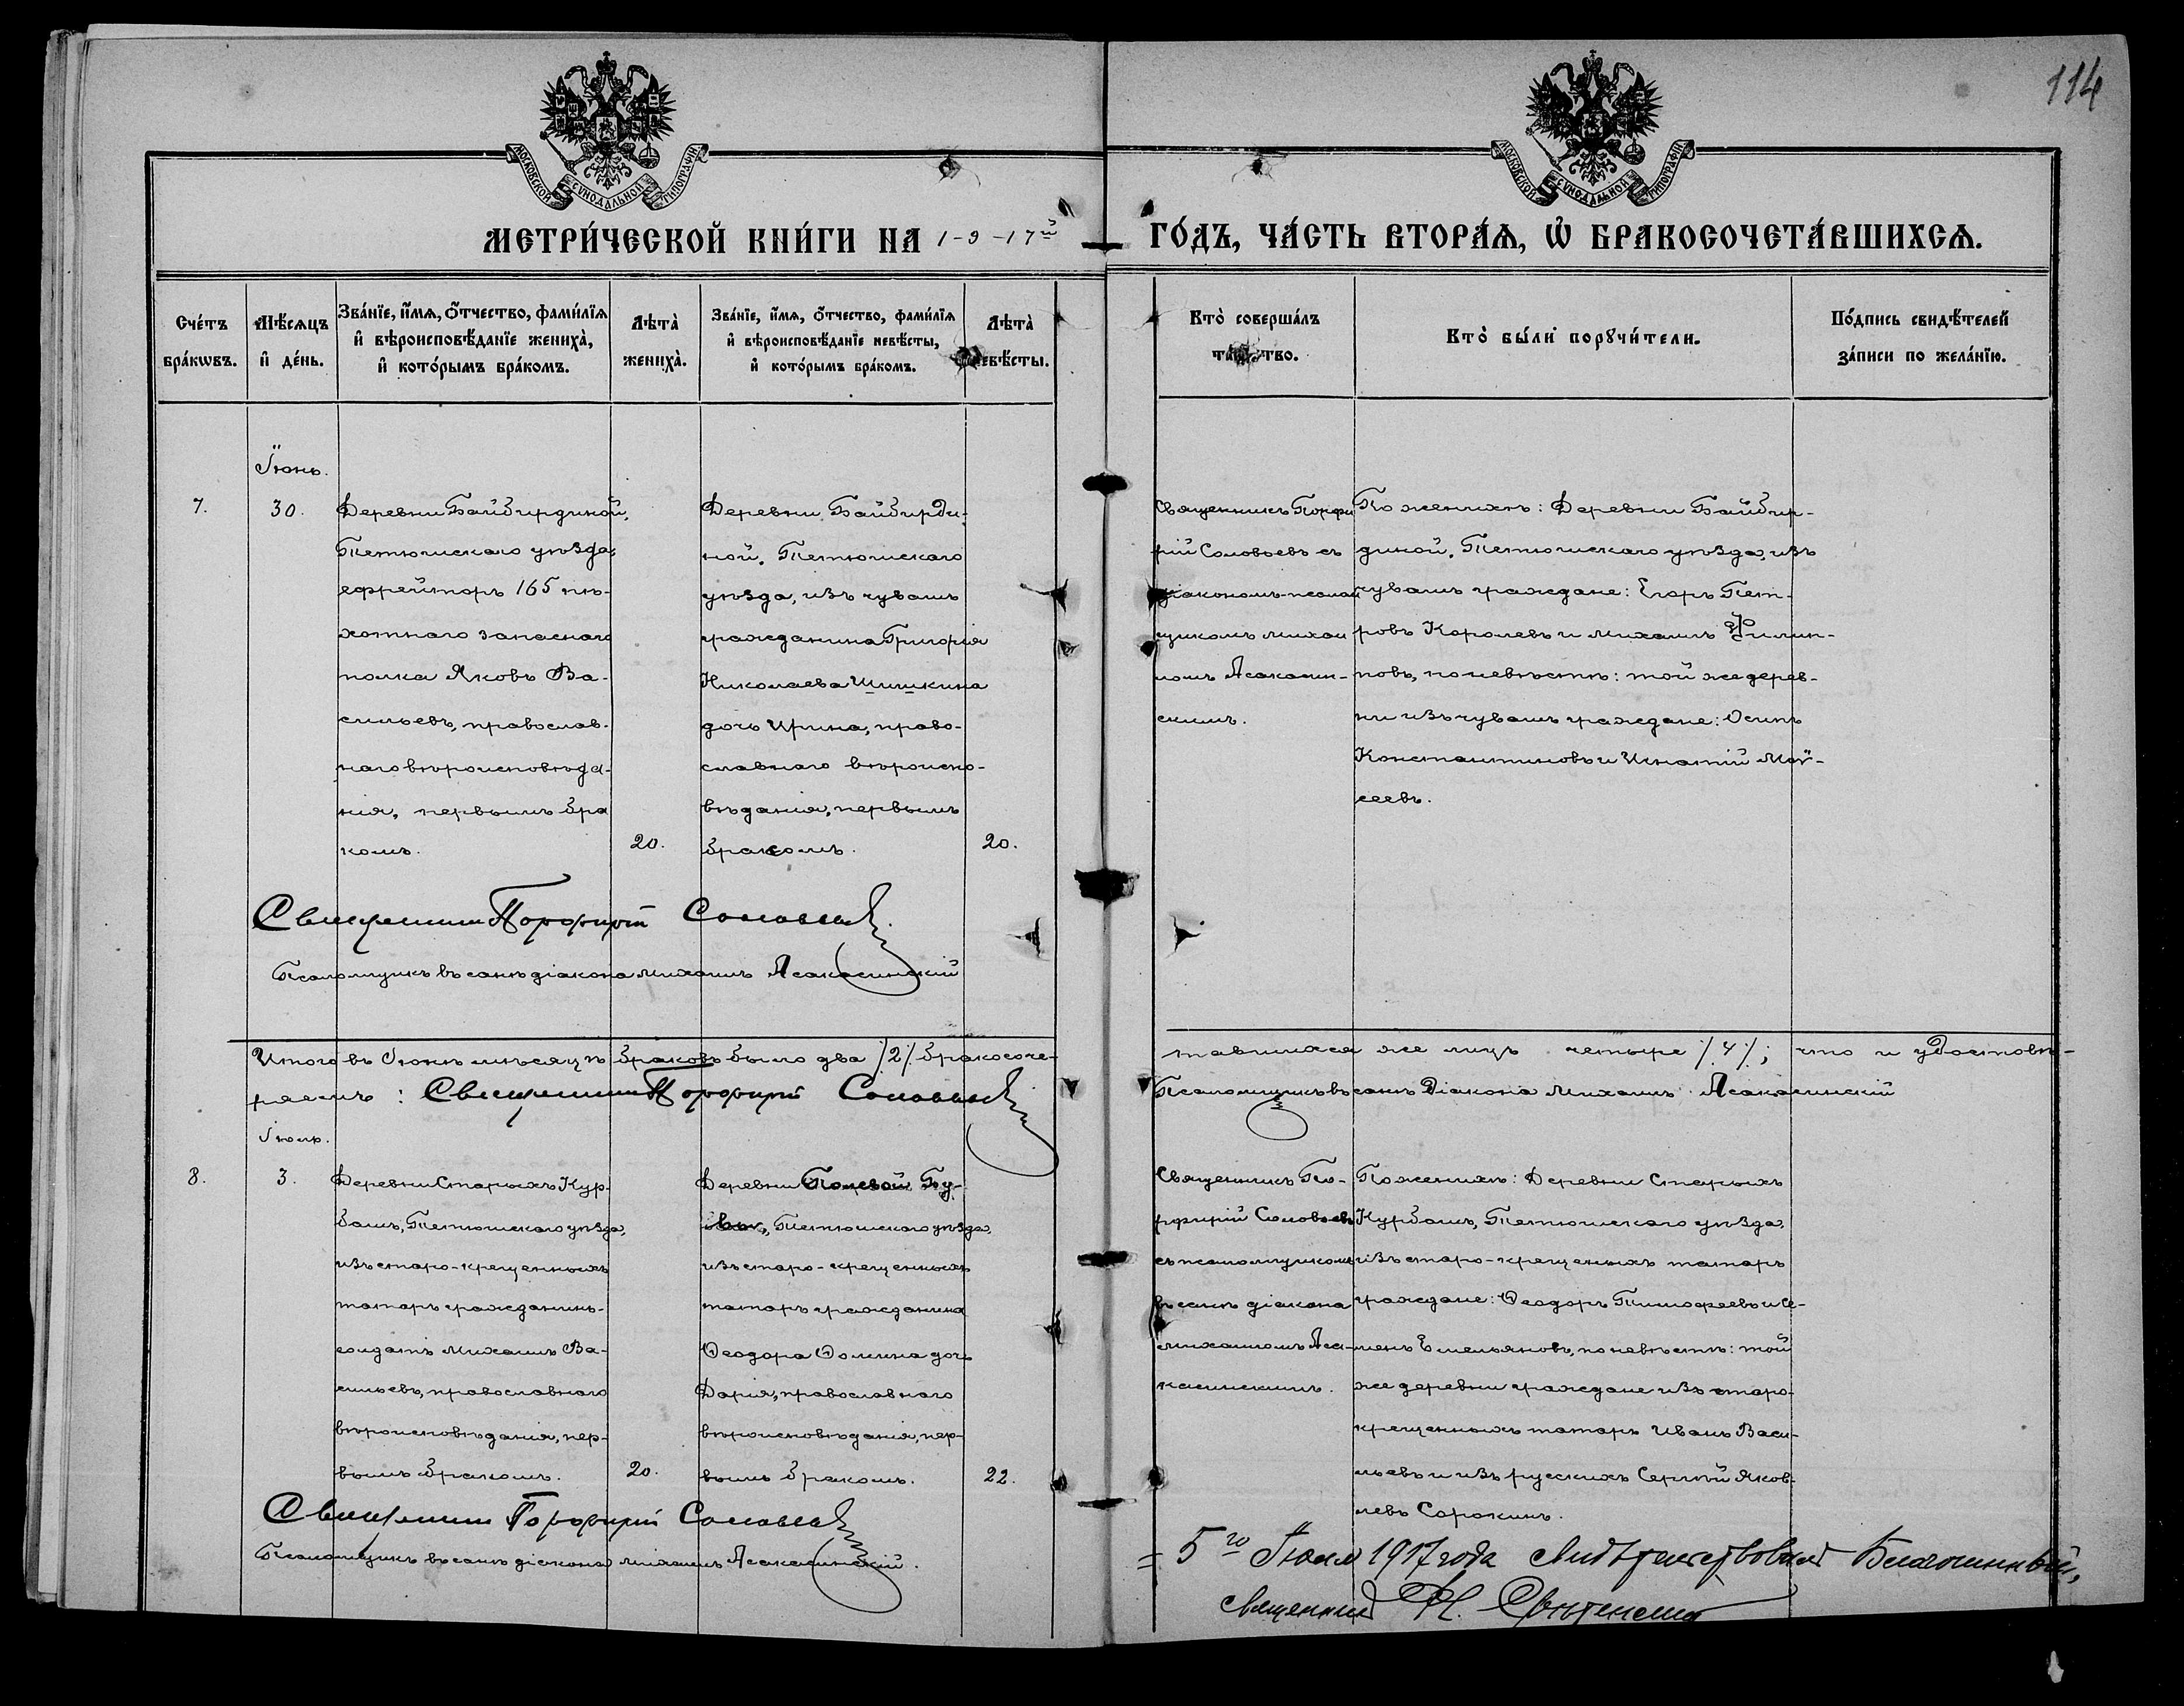 114
МОСКОВСКОЙ СѴНОДАЛЬНОЙ ТИПОГРАФІИ
МОСКОВСКОЙ СѴНОДАЛЬНОЙ ТИПОГРАФІИ
МЕТРИ́ЧЕСКОЙ КНИ́ГИ НА 1-9-17й
ГО́ДЪ, ЧА́СТЬ ВТОРА́Ѧ, Ѡ҆ БРАКОСОЧЕТА́ВШИХСѦ.
Сче́тъ
бра́кѡвъ.
Мѣ́сѧцъ
и҆ де́нь.
Зва́нїе, и҆́мѧ, ѻ҆́тчество, фами́лїѧ
и҆ вѣроисповѣ́данїе жениха̀,
и҆ кото́рымъ бра́комъ.
Лѣта̀
жениха̀.
Зва́нїе, и҆́мѧ, ѻ҆́тчество, фами́лїѧ
и҆ вѣроисповѣ́данїе невѣ́сты,
и҆ кото́рымъ бра́комъ.
Лѣта̀
невѣ́сты.
Кто̀ соверша́лъ
таинство.
Кто̀ бы́ли порꙋчи́тели.
По́дпись свидѣ́телей
за́писи по жела́нїю.
Іюнь.
7.
30.
Деревни Байбирдиной,
Тетюшскаго уѣзда,
ефрейторъ 165 пѣ-
хотнаго запаснаго
полка Яковъ Ва-
сильевъ, православ-
наго вѣроисповѣда-
нія, первымъ бра
комъ.
20.
Деревни Байбирди-
ной, Тетюшскаго
уѣзда, изъ чувашъ
гражданина Григорія
Николаева Шишкина
дочь Ирина, право-
славнаго вѣроиспо-
вѣданія, первымъ
бракомъ.
20.
Священникъ Порфи
рій Соловьевъ съ
діакономъ-псалом
щикомъ Михаи
ломъ Асакасин-
скимъ.
По женихѣ: Деревни Байбир-
диной, Тетюшскаго уѣзда, изъ
чувашъ граждане: Егоръ Пет-
ровъ Королевъ и Михаилъ Филип-
повъ, по невѣстѣ: той же дерев-
ни изъ чувашъ граждане: Осипъ
Константиновъ и Игнатій Мої-
сеевъ.
Священникъ Порфирій Соловьевъ.
Псаломщикъ въ санѣ діакона Михаилъ Асакасинскій
Итого въ Іюнѣ мѣсяцѣ браковъ было два /2/ бракосоче-
тавшихся же лицъ четыре /4/; что и удостовѣ-
ряемъ: Священникъ Порфирій Соловьевъ
Псаломщикъ въ санѣ Діакона Михаилъ Асакасинскій
Іюль.
8.
3.
Деревни Старыхъ Кур-
башъ, Тетюшскаго уѣзда,
изъ старо-крещенныхъ
татаръ гражданинъ-
солдатъ Михаилъ Ва-
сильевъ, православнаго
вѣроисповѣданія, пер-
вымъ бракомъ.
20.
Деревни Полевой Бу-
вы, Тетюшскаго уѣзда,
изъ старо-крещенныхъ
татаръ гражданина
Ѳеодора Ѳомина дочь
Дарія, православнаго
вѣроисповѣданія, пер-
вымъ бракомъ.
22.
Священникъ По-
рфирій Соловьевъ
съ псаломщикомъ
въ санѣ діакона
Михаиломъ Аса-
касинскимъ.
По женихѣ: Деревни Старыхъ
Курбашъ, Тетюшскаго уѣзда,
изъ старо-крещеныхъ татаръ
граждане: Ѳеодоръ Тимофеевъ и Се-
менъ Емельяновъ, по невѣстѣ: той
же деревни граждане изъ старо-
крещенныхъ татаръ Иванъ Васи-
льевъ и изъ русскихъ Сергѣй Яков-
левъ Сорокинъ.
Священникъ Порфирій Соловьевъ
Псаломщикъ въ санѣ діакона Михаилъ Асакасинскій.
= 5го Іюля 1917 года свидѣтельствовалъ Благочинный,
священникъ